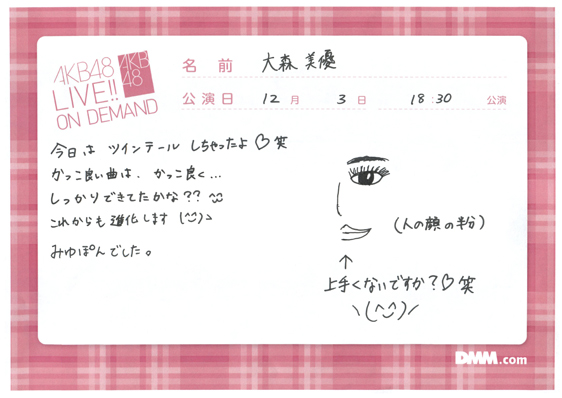 AKB48
LIVE!!
ON DEMAND
AKB
48
名 前 大森 美優
公演日 12 月 3 日 18:30 公演
今日は ツインテール しちゃったよ♡笑
かっこ良い曲は、かっこ良く...
しっかりできてたかな?? ^^
これからも進化します (^^)ゝ
みゆぽんでした。
(人の顔の半分)
↑
上手くないですか?♡笑
\(^^)/
DMM.com